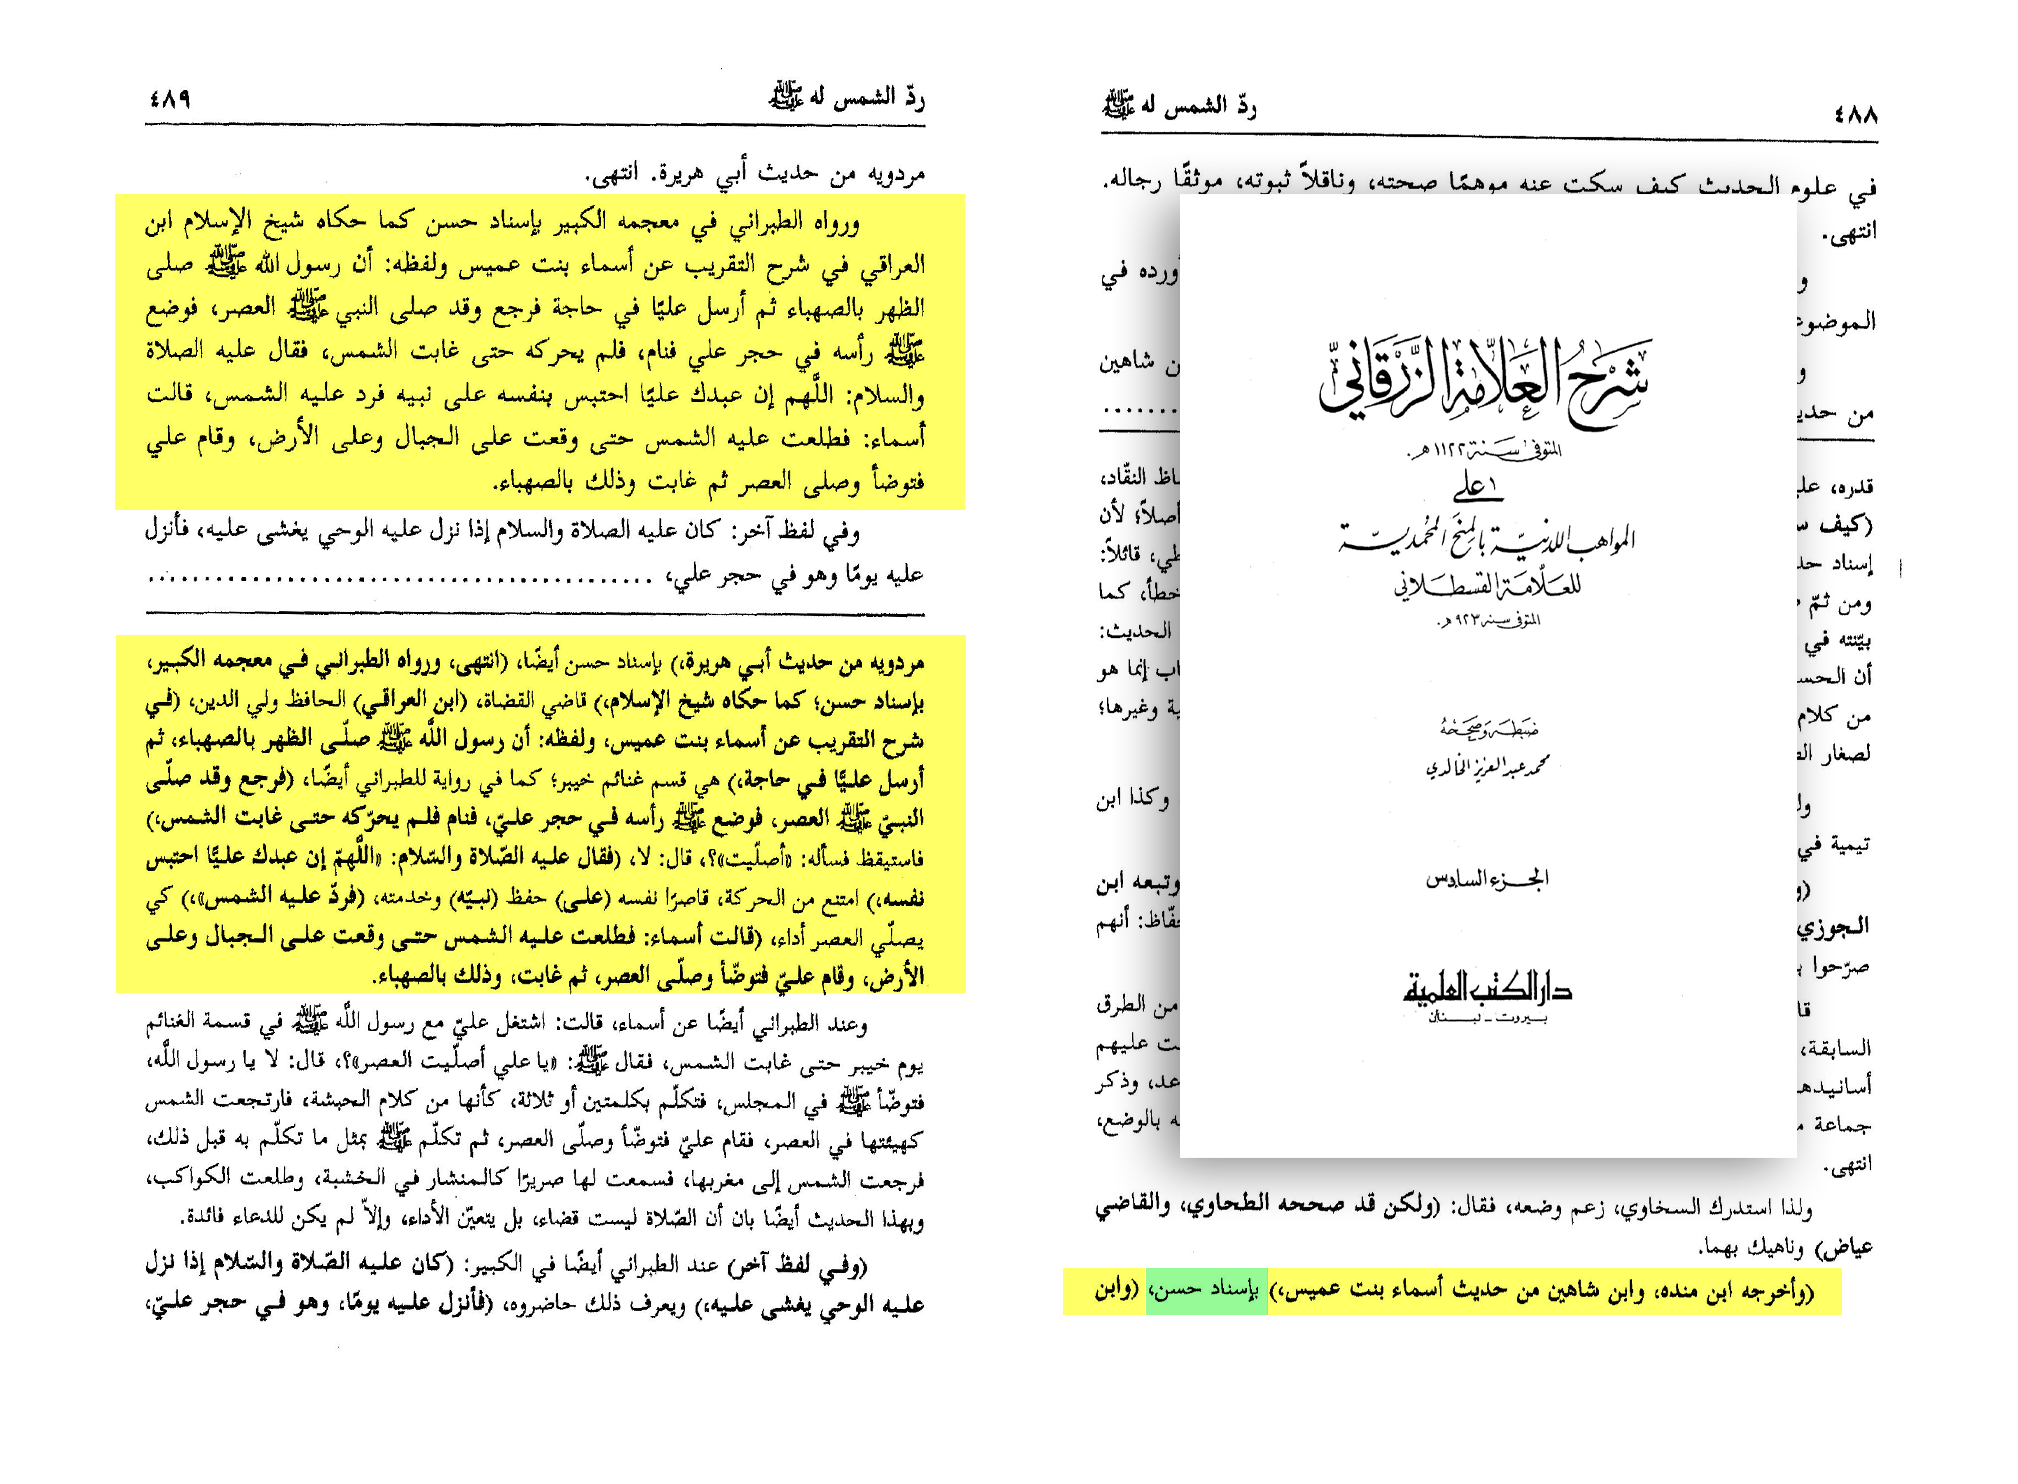 ٤٨٨
ردّ الشمس له ﷺ
في علوم الحديث كيف سكت عنه موهمًا صحته، وناقلاً ثبوته، موثقًا رجاله.
انتهى.
أورده في
الموضوع
ن شاهين
من حديـ
شَرْحُ العَلاَّمَة الزَّرْقَانيّ
المتوفى سَنة ١١٢٢ هـ.
على
المواهب اللدنيّة بالمنَح المُحمديّة
للعَلاّمَة القسطَلاني
المتوفى سنه ٩٢٣ هـ.
ضَبَطَه وَصَحَّحَهُ
محمد عبد العزيز الخالدي
الجزء السادس
دار الكتب العلمية
بيروت - لبنان
قدره، علـ
ـاظ النقّاد،
(كيف سـ
أصلاً؛ لأن
إسناد حد
ـطي، قائلاً:
ومن ثمّ
خطأ، كما
بيّنته في
الحديث:
أن الحسـ
ـاب إنما هو
من كلام
ـية وغيرها؛
لصغار
وكذا ابن
تيمية في
وتبعه ابن
الجوزي
ـحفّاظ: أنهم
صرّحوا
من الطرق
السابقة،
ـت عليهم
أسانيدهـ
ـاعد، وذكر
جماعة
ـه بالوضع،
انتهى.
ولذا استدرك السخاوي، زعم وضعه، فقال: (ولكن قد صححه الطحاوي، والقاضي
عياض) وناهيك بهما.
(وأخرجه ابن منده، وابن شاهين من حديث أسماء بنت عميس،) بإسناد حسن، (وابن
ردّ الشمس له ﷺ
٤٨٩
مردويه من حديث أبي هريرة. انتهى.
ورواه الطبراني في معجمه الكبير بإسناد حسن كما حكاه شيخ الإسلام ابن
العراقي في شرح التقريب عن أسماء بنت عميس ولفظه: أن رسول الله ﷺ صلى
الظهر بالصهباء ثم أرسل عليًا في حاجة فرجع وقد صلى النبي ﷺ العصر، فوضع
ﷺ رأسه في حجر علي فنام، فلم يحركه حتى غابت الشمس، فقال عليه الصلاة
والسلام: اللَّهم إن عبدك عليًا احتبس بنفسه على نبيه فرد عليه الشمس، قالت
أسماء: فطلعت عليه الشمس حتى وقعت على الجبال وعلى الأرض، وقام علي
فتوضأ وصلى العصر ثم غابت وذلك بالصهباء.
وفي لفظ آخر: كان عليه الصلاة والسلام إذا نزل عليه الوحي يغشى عليه، فأنزل
عليه يومًا وهو في حجر علي، ............
مردويه من حديث أبي هريرة،) بإسناد حسن أيضًا، (انتهى، ورواه الطبراني في معجمه الكبير،
بإسناد حسن؛ كما حكاه شيخ الإسلام،) قاضي القضاة، (ابن العراقي) الحافظ ولي الدين، (في
شرح التقريب عن أسماء بنت عميس، ولفظه: أن رسول اللَّه ﷺ صلّى الظهر بالصهباء، ثم
أرسل عليًا في حاجة،) هي قسم غنائم خيبر؛ كما في رواية للطبراني أيضًا، (فرجع وقد صلّى
النبيّ ﷺ العصر، فوضع ﷺ رأسه في حجر عليّ، فنام فلم يحرّكه حتى غابت الشمس،)
فاستيقظ فسأله: «أصلّيت»؟، قال: لا، (فقال عليه الصّلاة والسّلام: «اللَّهمّ إن عبدك عليًا احتبس
نفسه،) امتنع من الحركة، قاصرًا نفسه (على) حفظ (نبيّه) وخدمته، (فردّ عليه الشمس»،) كي
يصلّي العصر أداء، (قالت أسماء: فطلعت عليه الشمس حتى وقعت على الجبال وعلى
الأرض، وقام عليّ فتوضّأ وصلّى العصر، ثم غابت، وذلك بالصهباء.
وعند الطبراني أيضًا عن أسماء، قالت: اشتغل عليّ مع رسول اللَّه ﷺ في قسمة الغنائم
يوم خيبر حتى غابت الشمس، فقال ﷺ: «يا علي أصلّيت العصر»؟، قال: لا يا رسول اللَّه،
فتوضّأ ﷺ في المجلس، فتكلّم بكلمتين أو ثلاثة، كأنها من كلام الحبشة، فارتجعت الشمس
كهيئتها في العصر، فقام عليّ فتوضّأ وصلّى العصر، ثم تكلّم ﷺ بمثل ما تكلّم به قبل ذلك،
فرجعت الشمس إلى مغربها، فسمعت لها صريرًا كالمنشار في الخشبة، وطلعت الكواكب،
وبهذا الحديث أيضًا بان أن الصّلاة ليست قضاء، بل يتعيّن الأداء، وإلاّ لم يكن للدعاء فائدة.
(وفي لفظ آخر) عند الطبراني أيضًا في الكبير: (كان عليه الصّلاة والسّلام إذا نزل
عليه الوحي يغشى عليه،) ويعرف ذلك حاضروه، (فأنزل عليه يومًا، وهو في حجر عليّ،